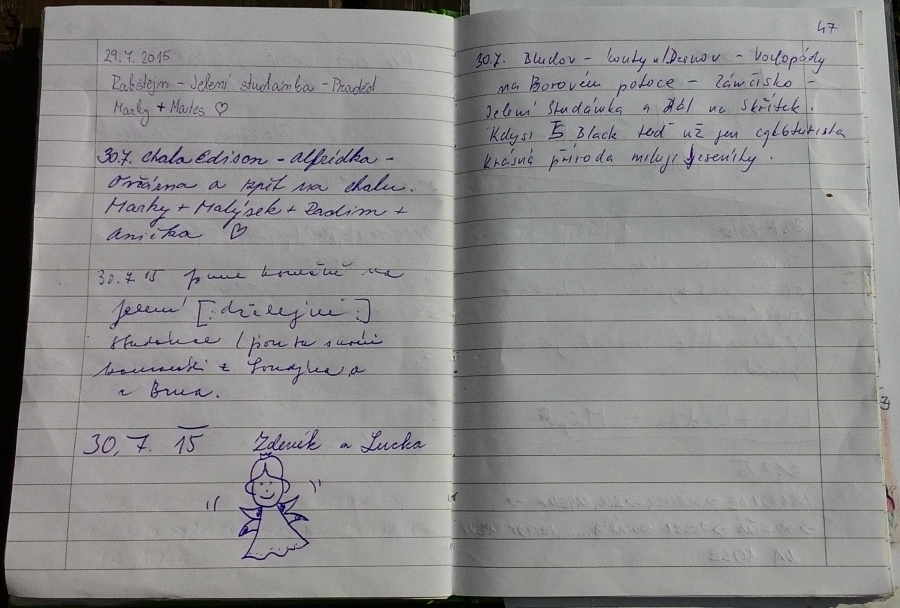 29.7. 2015
Rabštejn - Jelení studánka - Praděd
Marky + Mates ♡
30.7. chata Edison - Alfrédka -
Ovčárna a zpět na chatu.
Marky + Malýsek + Radim +
Anička ♡
30.7.15 jsme konečně na
Jelení [:džilejní:]
studánce (jsou tu
z
z Brna.
30.7. 15 Zdeněk a Lucka
47
30.7. Bludov - Kouty n/Desnou - Vodopády
na Borovém potoce - Zámčisko -
Jelení Studánka a dál na Skřítek.
Kdysi Black teď už jen cykloturista
krásná příroda miluji Jeseníky.